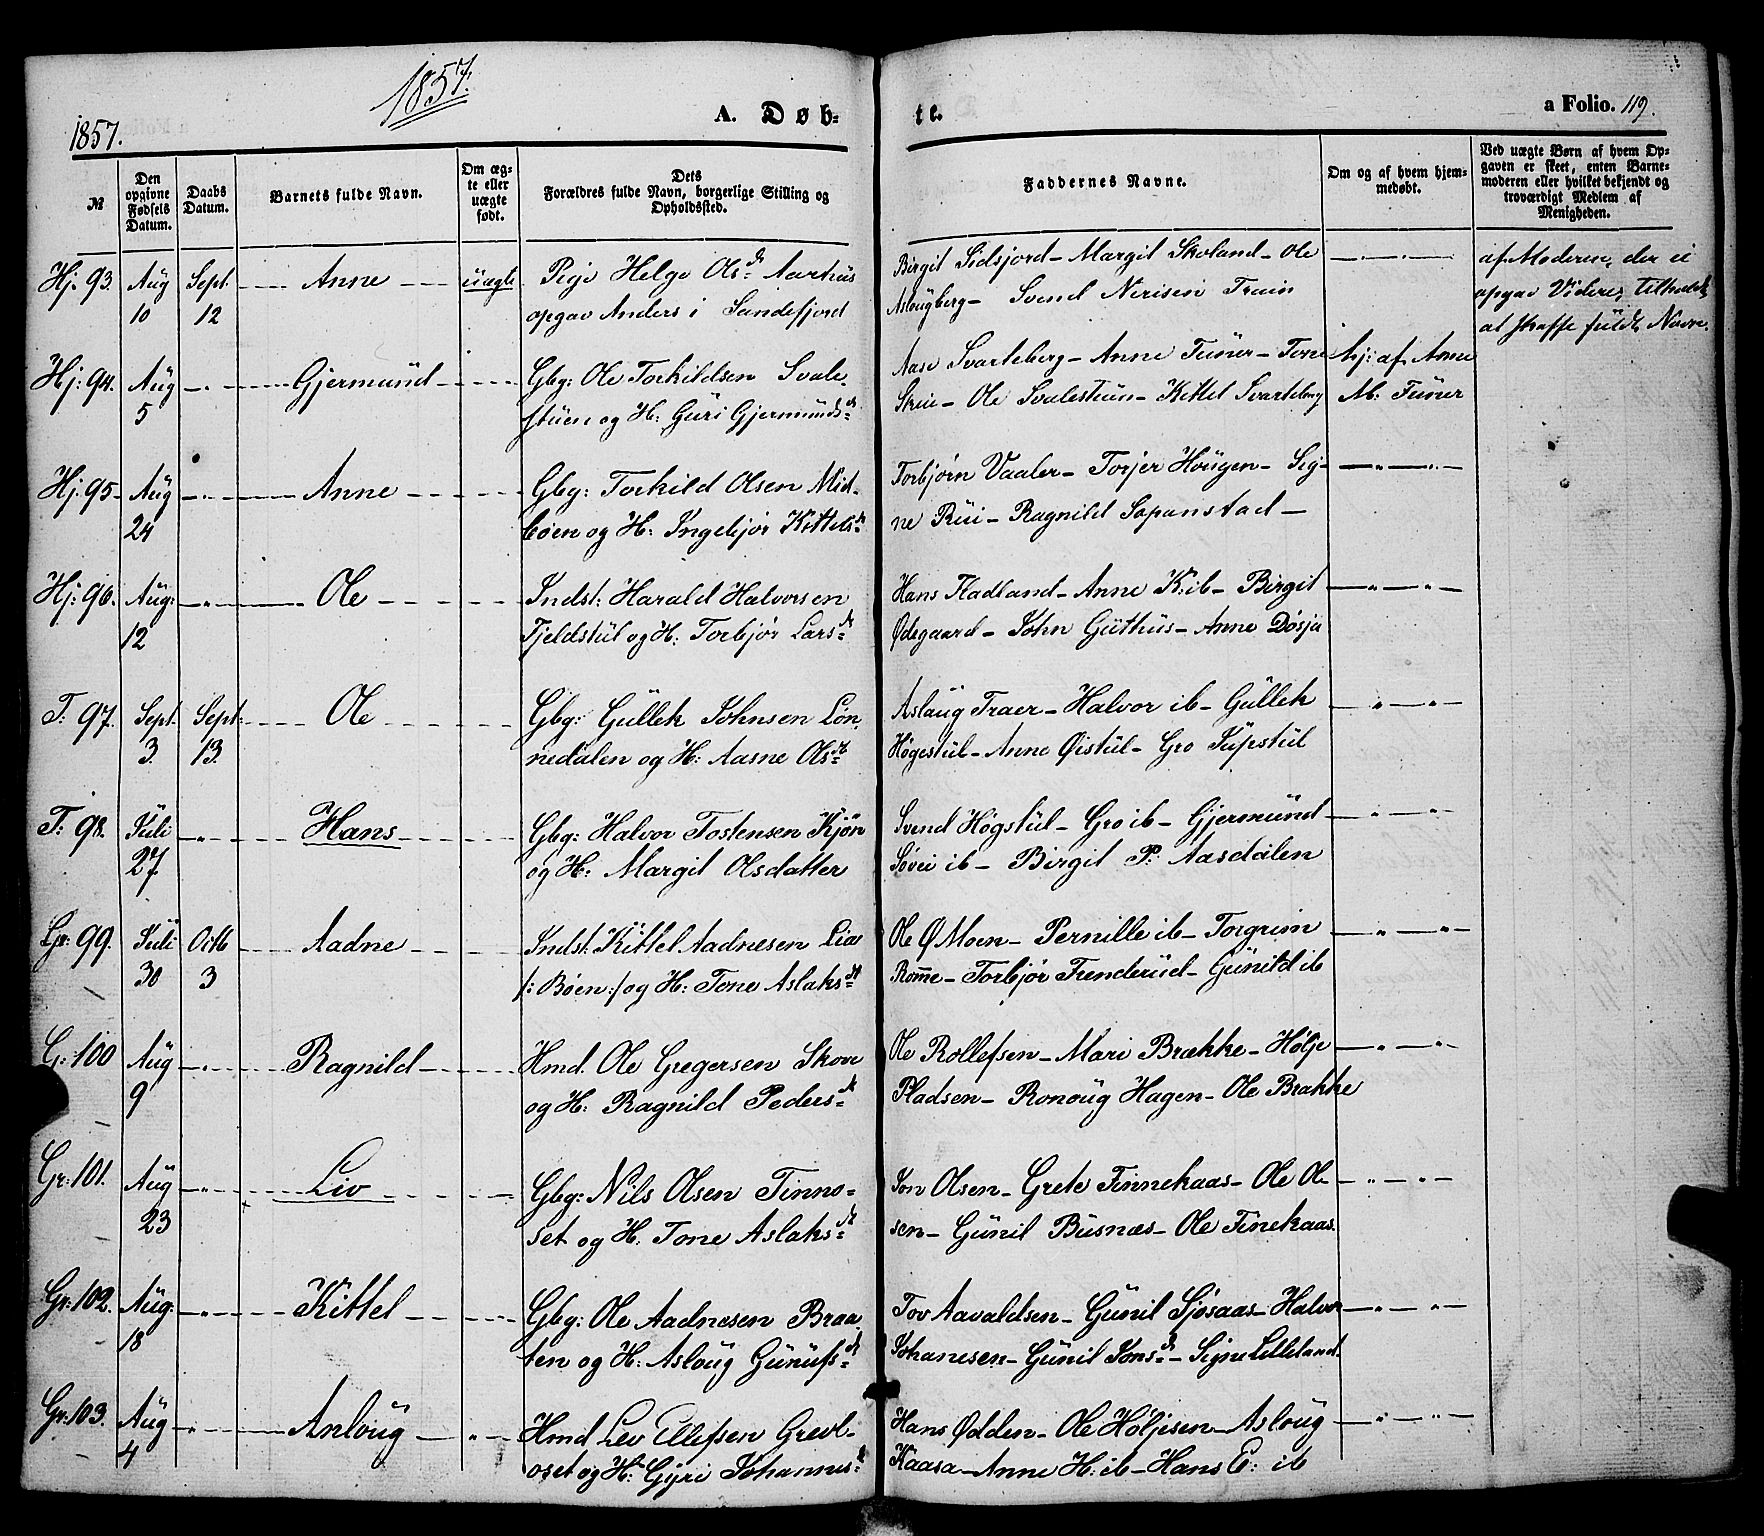 1857.
A. Døb-
te.
a Folio. 119.
1857.
№
Den opgivne Fødsels Datum.
Daabs Datum.
Barnets fulde Navn.
Om ægte eller uægte født.
Dets Forældres fulde Navn, borgerlige Stilling og Opholdssted.
Faddernes Navne.
Om og af hvem hjemmedøbt.
Ved uægte Børn af hvem Opgaven er skeet, enten Barnemoderen eller hvilket bekjendt og troværdigt Medlem af Menigheden.
Hj. 93. Aug 10 Sept. 12 Anne uægte
Pige Helge Olsd. Aarhus
opgav Anders i Sandefjord
Birgit Sidsjord - Margit Skoland - Ole
Aslougberg - Svend Nerisen Traen
af Moderen, der ei
opgav Videre, tilholdt
at skaffe fuldt Navn.
Hj: 94. Aug 5 -"- Gjermund
Gbg: Ole Torkildsen Svale-
stuen og H: Guri Gjermundsd.
Aase Svarteberg - Anne Tuner - Tone
Skeie - Ole Svalestuen - Kittel Svarteberg
hj: af Anne
M: Tuner
Hj. 95 - Aug 24 -"- Anne
Gbg: Torkild Olsen Mid-
bøen og H: Ingebjør Kittelsd.
Torbjørn Vaaler - Torjer Hougen - Sig-
ne Rui - Ragnild Sopanstad -
Hj: 96. Aug: 12 -"- Ole
Indst: Harald Halvorsen
Fjeldstul og H: Torbjør Larsd.
Hans Fladland - Anne K: ib - Birgit
Ødegaard - John Guthus - Anne Døsja
T: 97. Sept. 3. Sept: 13. Ole
Gbg: Gullek Johnsen Løn-
nedalen og H: Aasne Olsd.
Aslaug Traer - Halvor ib - Gullek
Høgestul - Anne Øistul - Gro Jupstul
T: 98. Juli 27 -"- Hans
Gbg: Halvor Tostensen Kjøn
og H: Margit Olsdatter
Svend Høgstul - Gro ib - Gjermund
Søvei ib - Birgit P: Aasdalen
Gr: 99. Juli 30 Octb 3 Aadne
Indst. Kittel Aadnesen Lia
/: Bøen :/ og H: Tone Aslaksd.
Ole Ø Moen - Pernille ib - Torgrim
Romme - Torbjør Frenderud - Gunild ib
G: 100 Aug 9 -"- Ragnild
Hmd. Ole Gregersen Skove
og H: Ragnild Pedersd.
Ole Rollefsen - Mari Brække - Hølje
Pladsen - Ronoug Hagen - Ole Brække
Gr: 101. Aug 23 -"- Liv
Gbg: Nils Olsen Tinno-
set og H: Tone Aslaksd.
Jon Olsen - Grete Finnekaas - Ole Ol-
sen - Gunil Busnæs - Ole Finekaas.
Gr: 102. Aug: 18 -"- Kittel
Gbg: Ole Aadnesen Braa-
ten og H: Asloug Gunufsd.
Tov Aavaldsen - Gunil Sjøsaas - Halvor
Johanesen - Gunil Jonsd. - Signe Lilleland.
Gr: 103. Aug 4 -"- Anloug
Hmd Lev Ellefsen Grevl-
oset og H: Gyri Johannesd.
Hans Ødden - Ole Høljesen - Asloug
Kaasa - Anne H: ib - Hans E: ib